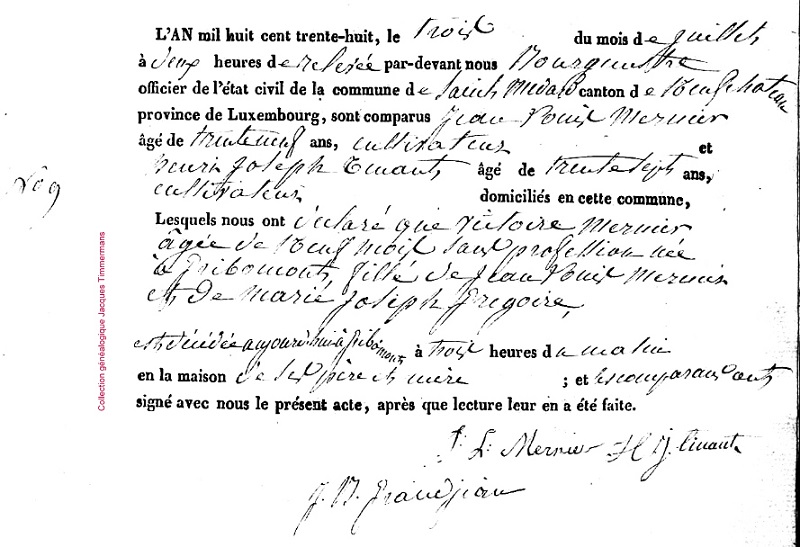 L'AN mil huit cent trente-huit, le trois du mois de juillet
à deux heures de relevée par-devant nous Bourgmestre
officier de l'état civil de la commune de Saint Medard canton de Neufchateau
province de Luxembourg, sont comparus Jean Louis Mernier
âgé de trente neuf ans, cultivateur et
henri Joseph Evrard âgé de trente sept ans,
cultivateur domiciliés en cette commune,
Lesquels nous ont déclaré que Victoire Mernier
âgée de neuf mois sans profession née
à Gribomont, fille de Jean Louis Mernier
et de Marie Joseph Grégoire,
est décédée aujourd'hui à Gribomont à trois heures du matin
en la maison de ses père et mère ; et les comparans ont
signé avec nous le présent acte, après que lecture leur en a été faite.
J. L. Mernier H J.
J. B. Grandjean
Collection généalogique Jacques Timmermans